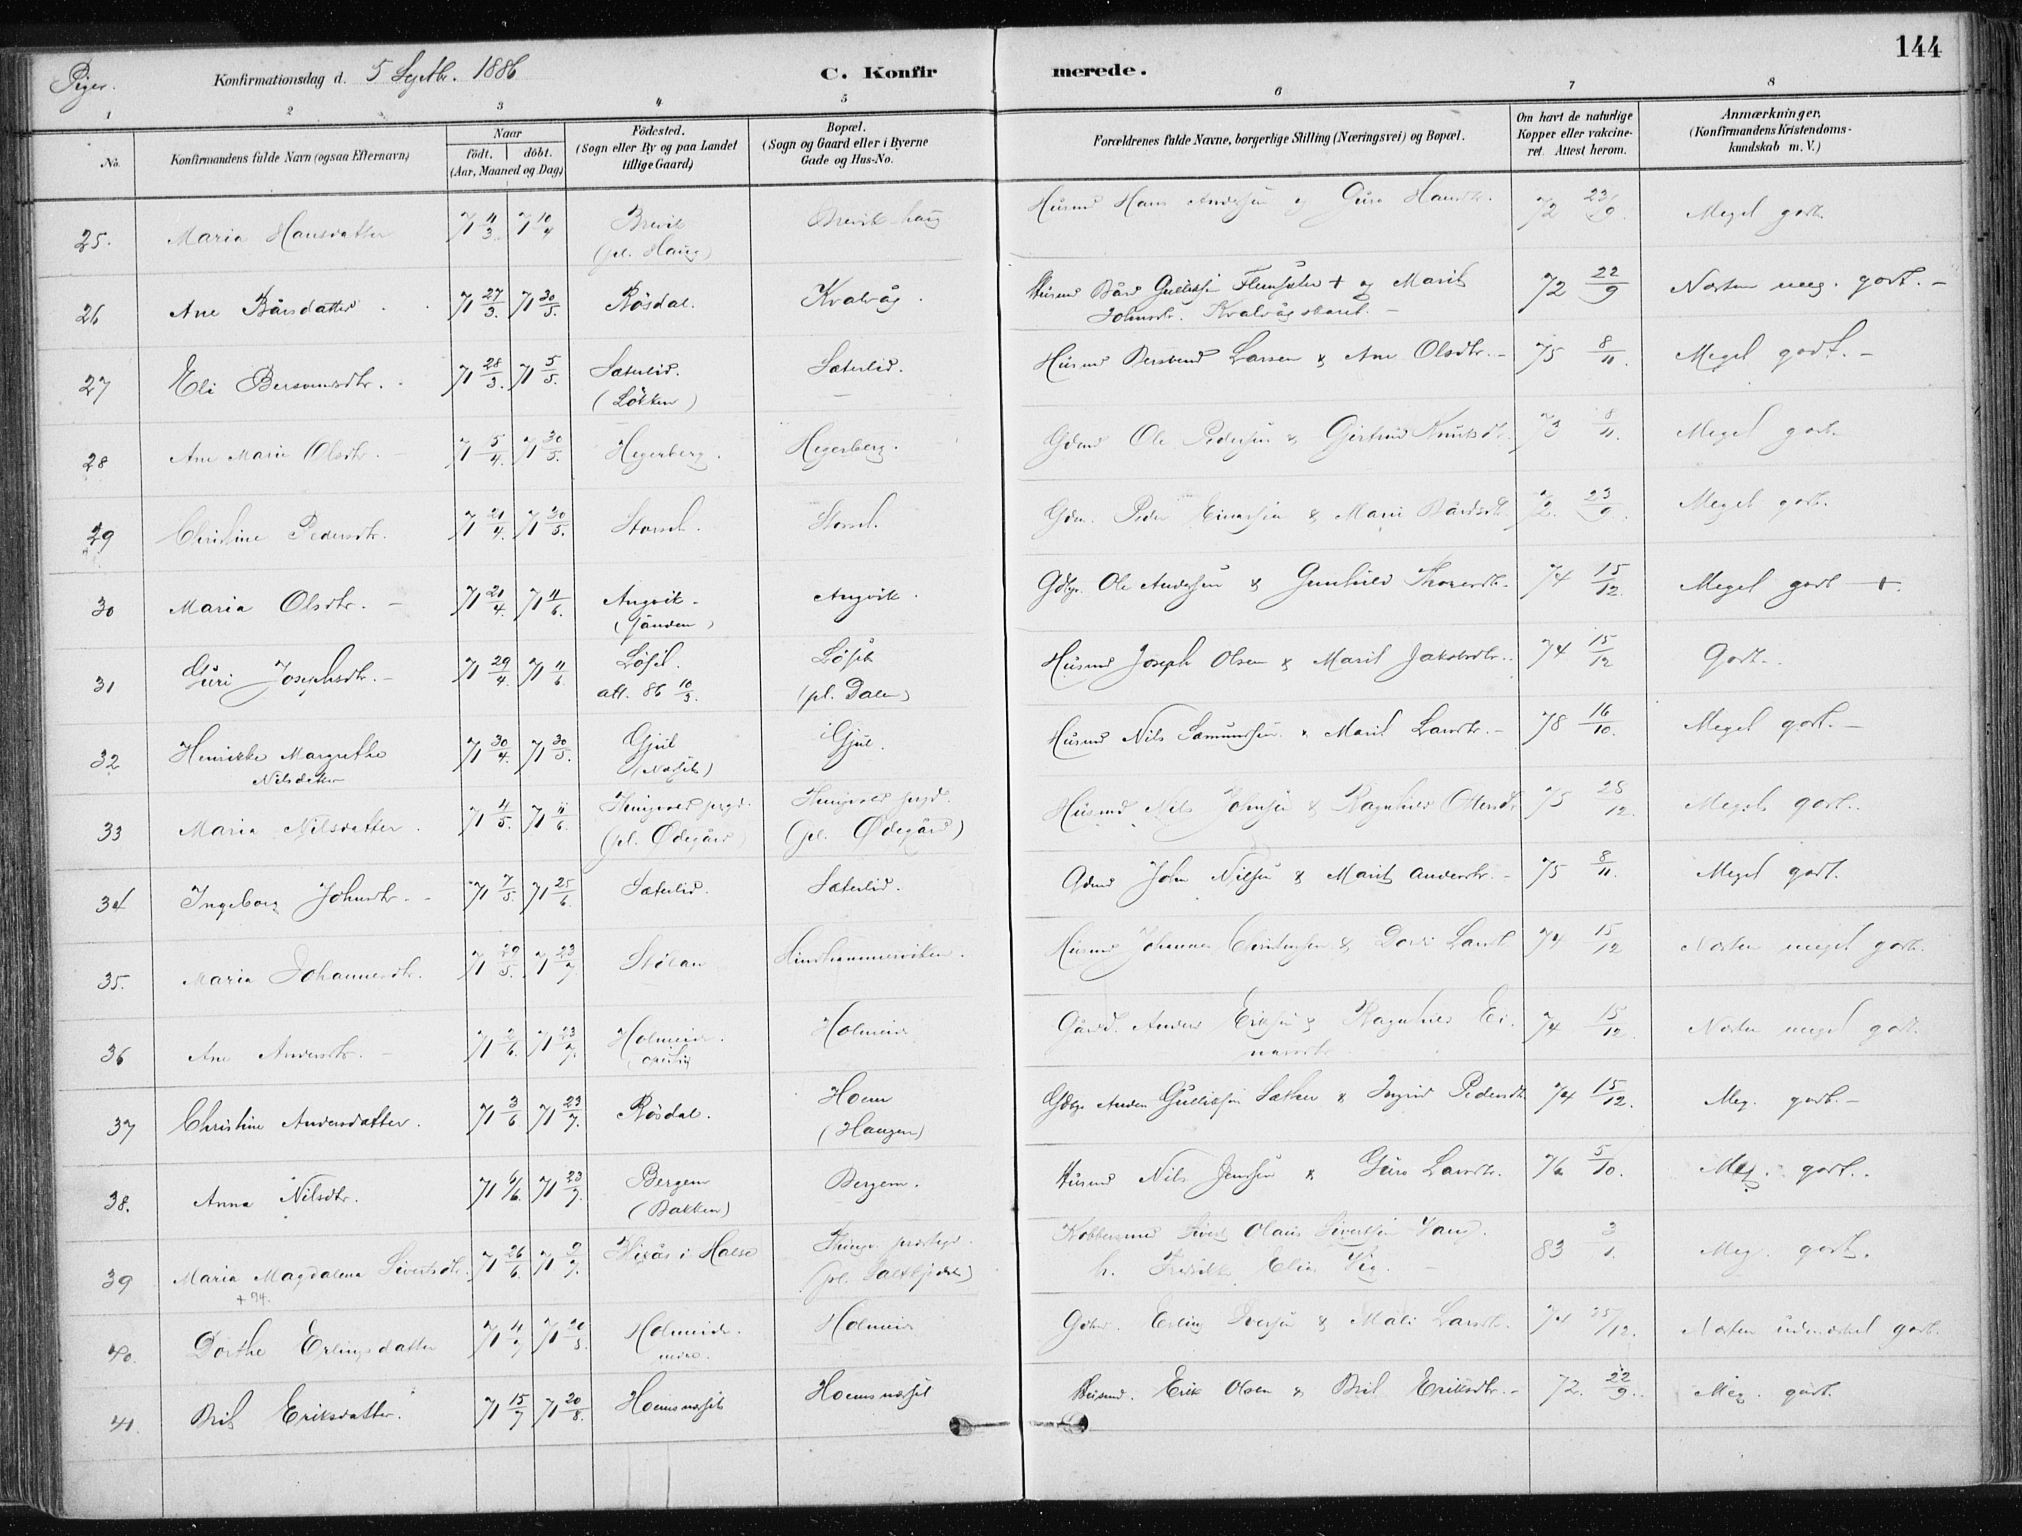 144
Piger. Konfirmationsdag d. 5 Septbr. 1886 C. Konfir merede.
1 2 3 4 5 6 7 8
No. Konfirmandens fulde Navn (ogsaa Efternavn) Naar født. døbt. (Aar, Maaned og Dag) Fødested. (Sogn eller By og paa Landet tillige Gaard) Bopæl. (Sogn og Gaard eller i Byerne Gade og Hus-No. Forældrenes fulde Navne, borgerlige Stilling (Næringsvei) og Bopæl. Om havt de naturlige Kopper eller vakcineret. Attest herom. Anmærkninger. (Konfirmandens Kristendomskundskab m. V.)
25. Maria Hansdatter 71 11/3 71 10/4 Brevik Brevik haug Husmd Hans Andersen og Guro Hansdtr. 72 23/9 Meget godt.
(pl. Haug)
26 Ane Bårsdatter 71 27/3. 71 30/5. Røsdal. Kvalvåg. Husmd Bård Gulliksen + og Marit 72 22/9 Næsten meg. godt. -
Johnsdtr.
27 Eli Bersvensdtr. 71 28/3. 71 5/5. Sæterlid. Sæterlid. Husmd Larsen & Ane Olsdtr. - 75 8/11. Meget godt. -
(Løkken)
28 Ane Marie Olsdtr. - 71 5/4. 71 30/5. Hegerberg. Hegerberg. Gdmd Ole Pedersen & Gjertrud Knutsdtr. 73 8/11. Meget godt.
29 Christine Pedersdtr. 71 21/4. 71 30/5. Storset. Storset. Gdm. Peder Einarsen & Marie Bårdsdtr. 72. 23/9. Meget godt.
30 Maria Olsdtr. - 71 21/4. 71 11/6. Angvik. Angvik. Gdbr. Ole Andersen & Gunhild Thoresdtr. 74 15/12. Meget godt +.
31 Guri Josephsdtr. - 71 29/4. 71 11/6. Løset. Løset Husmd Joseph Olsen & Marit Jakobsdtr. 74 15/12 Godt.
att. 86 10/3. (pl. Dalen)
32 Henrikke Margrethe 71 30/4. 71 30/5. Gjul Gjul. Husmd Nils Sæmundsen & Marit Larsdtr. - 78 16/10. Meget godt. -
Nilsdatter (Næset)
33 Maria Nilsdatter. 71 4/5. 71 11/6. Thingvold prgd. Thingvold prgd. Husmd Nils Johnsen & Ragnhild Ottersdtr 75 28/12. Meget godt.
(pl. Ødegård) (pl. Ødegård)
34 Ingeborg Johnsdtr. - 71 7/5. 71 25/6. Sæterlid. Sæterlid. Gdmd John Nilsen & Marit Andersdtr. - 75 8/11. Meget godt.
35. Maria Johannesdtr. 71 29/5. 71 23/7 Stølan Husmd Johannes Christensen & 74 15/12 Næsten meget godt.
36 Ane Andersdtr. - 71 2/6. 71 23/7. Holmeide. Holmeide Anders Eriksen & Ragnhild Ei- 74 15/12. Næsten meget godt.
narsdtr
37 Christine Andersdatter. 71 3/6 71 23/7. Røsdal. Hoem Gdbr Anders Gulliksen Sæther & Ingrid Pedersdtr 74 15/12. Meg. godt. -
(Haugen)
38. Anna Nilsdtr. 71 6/6. 71 23/7. Bergem Bergem. Husmd Nils Jensen & Guro Larsdtr. 76 5/10. Meg. godt.
(Bakken)
39 Maria Magdalena Sivertsdtr. 71 26/6. 71 9/7. i Halse Thingv. præstegd. Sivert Olaus Sivertsen Vaag. 83 3/1. Meg. godt.
+ 94. h. Fredrikke Elise Vig.
40. Dorthe Erlingsdatter 71 4/7 71 20/8 Holmeide. Holmeide Gdbr. Erling Iversen & Mali Larsdtr. 74 25/12. Næsten udmærket godt.
nedre.
41 Brit Eriksdatter. 71 15/7 71 20/8. Hoemsnæset Hoemsnæset Husmd. Erik Olsen & Brit Eriksdtr. - 72. 22/9. Meg. godt.